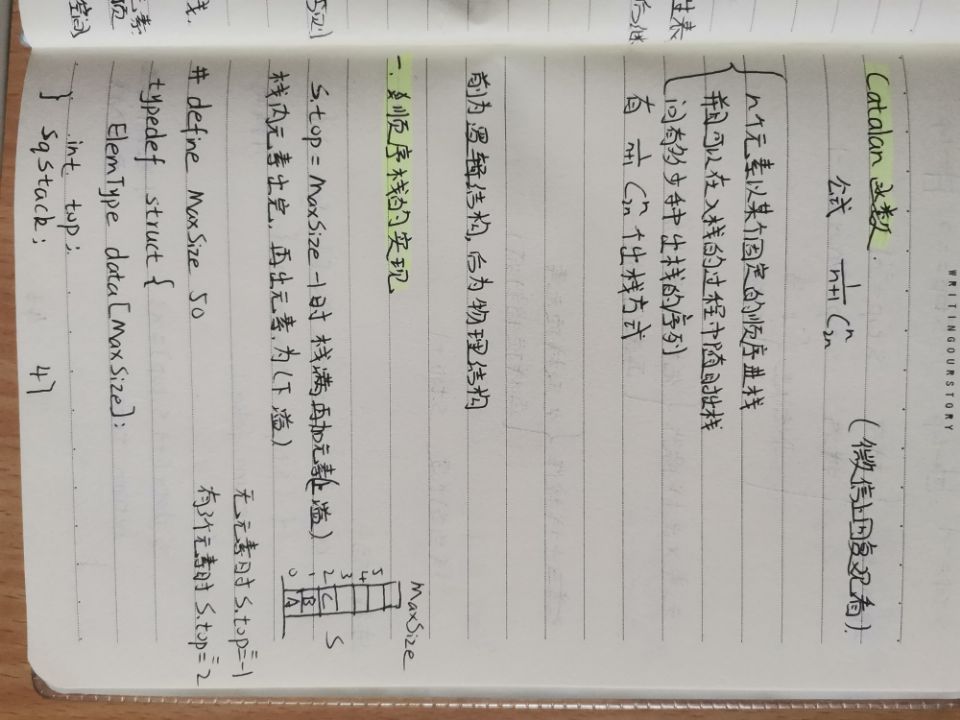 WRITINGOURSTORY
Catalan 函数. (微信上回复观看).
公式 1/(n+1) C_{2n}^{n}
n个元素以某个固定的顺序进栈
并且可以在入栈的过程中随时出栈
问有多少种出栈的序列
有 1/(n+1) C_{2n}^{n} 个出栈方式
前为逻辑结构,后为物理结构
一. 顺序栈的实现
S.top = MaxSize -1时 栈满 再加元素(上溢)
栈内元素出完, 再出元素, 为(下溢)
MaxSize
0 1 2 3 4 5
A B C
S
无元素时 S.top = -1
有3个元素时 S.top = 2
# define MaxSize 50
typedef struct {
ElemType data[MaxSize];
int top;
} SqStack;
47